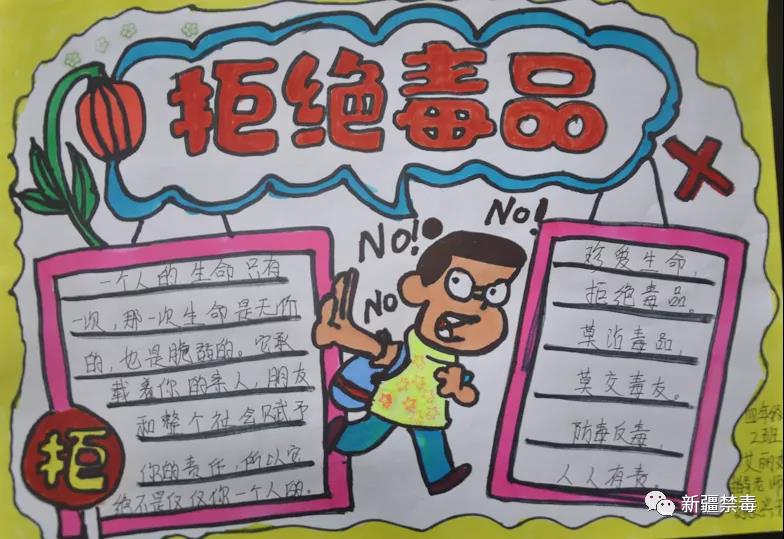 拒绝毒品
No!
No!
No
一个人的生命只有
一次,那一次生命是无价
的,也是脆弱的。它承
载着你的亲人,朋友
和整个社会赋予
你的责任,所以它
绝不是仅仅你一个人的.
拒
珍爱生命,
拒绝毒品。
莫沾毒品,
莫交毒友。
防毒反毒,
人人有责。
四年级
2班
新疆禁毒